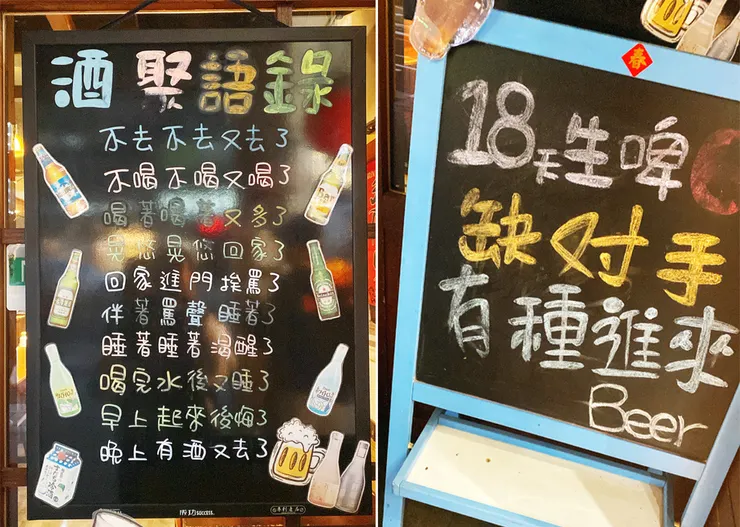 酒聚語錄
不去不去又去了
不喝不喝又喝了
喝著喝著又多了
晃悠晃悠回家了
回家進門挨罵了
伴著罵聲睡著了
睡著睡著渴醒了
喝完水後又睡了
早上起來後悔了
晚上有酒又去了
春
18天生啤
缺对手
有種進來
Beer